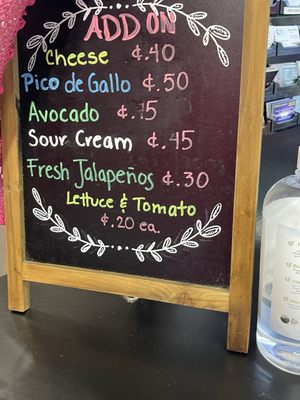 ADD ON
Cheese ¢.40
Pico de Gallo ¢.50
Avocado ¢.75
Sour Cream ¢.45
Fresh Jalapeños ¢.30
Lettuce & Tomato
¢.20 ea.